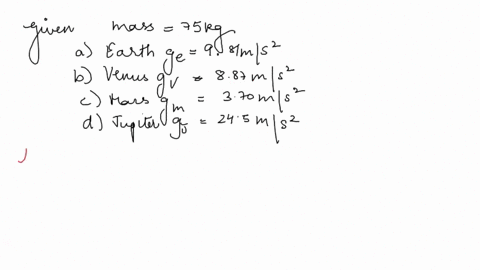 given mass = 75kg
a) Earth ge = 9.81m/s²
b) Venus gV = 8.87 m/s²
c) Mars gm = 3.70 m/s²
d) Jupiter gJ = 24.5 m/s²